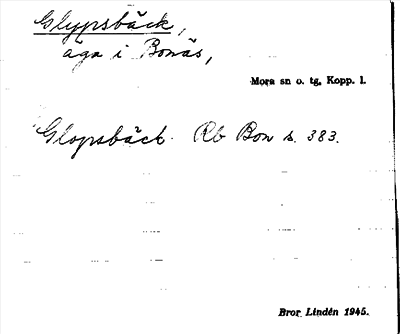 Glypsbäck,
äga i Bonäs,
Mora sn o. tg, Kopp. l.
Glopsbäck. Rb Bon s. 383.
Bror Lindén 1945.